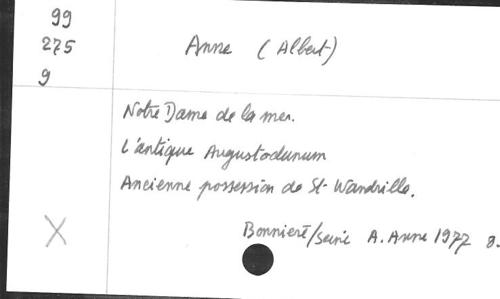 99
275
9
Anne (Albert)
Notre Dame de la mer.
L'antique Augustodunum
Ancienne possession de St Wandrille.
X
Bonnieré/seine A. Anne 1977 8.